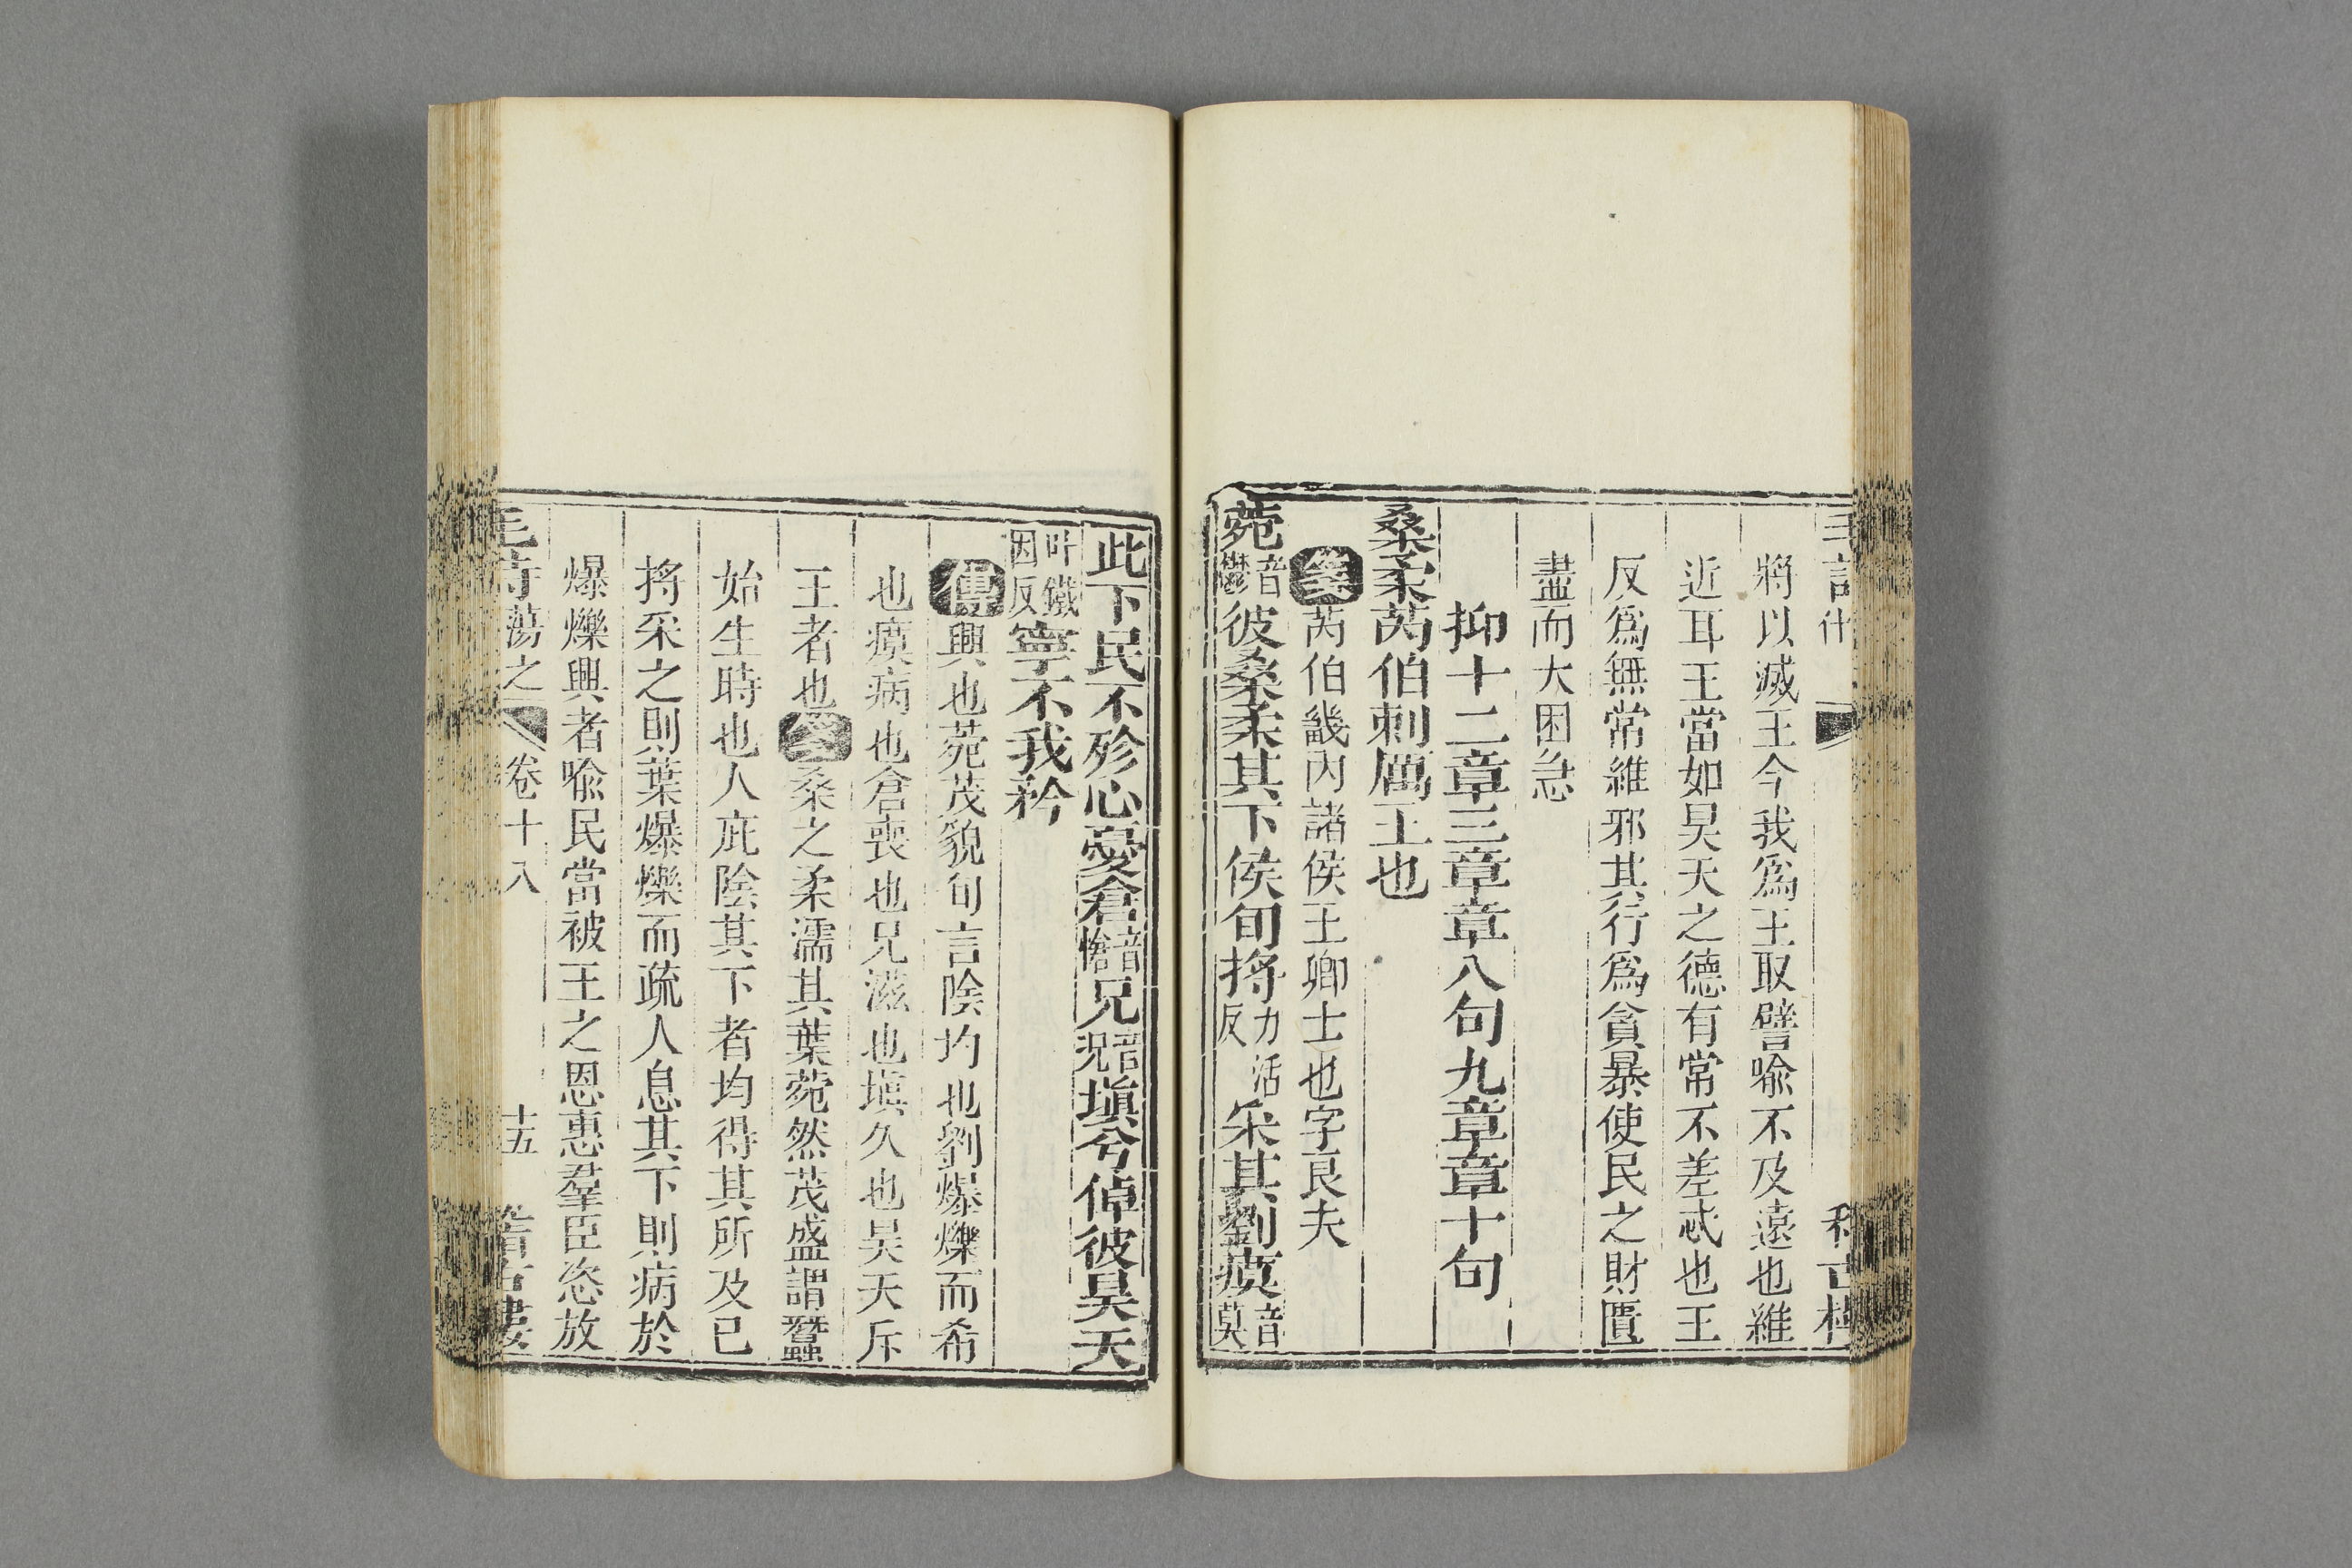 將以滅王今我爲王取譬喻不及遠也維
近耳王當如昊天之德有常不差忒也王
反爲無常維邪其行爲貪暴使民之財匱
盡而大困急
抑十二章三章章八句九章章十句
桑柔芮伯刺厲王也
箋芮伯畿內諸侯王卿士也字良夫
菀音鬱彼桑柔其下侯旬捋力活反采其劉瘼音莫
此下民不殄心憂倉音愴兄音况塡兮倬彼昊天
叶鐵因反寧不我矜
傳興也菀茂貌旬言陰均也劉爆爍而希
也瘼病也倉喪也兄滋也塡久也昊天斥
王者也箋桑之柔濡其葉菀然茂盛謂蠶
始生時也人庇陰其下者均得其所及已
捋采之則葉爆爍而疏人息其下則病於
爆爍興者喻民當被王之恩惠羣臣恣放
毛詩蕩之 卷十八 十五